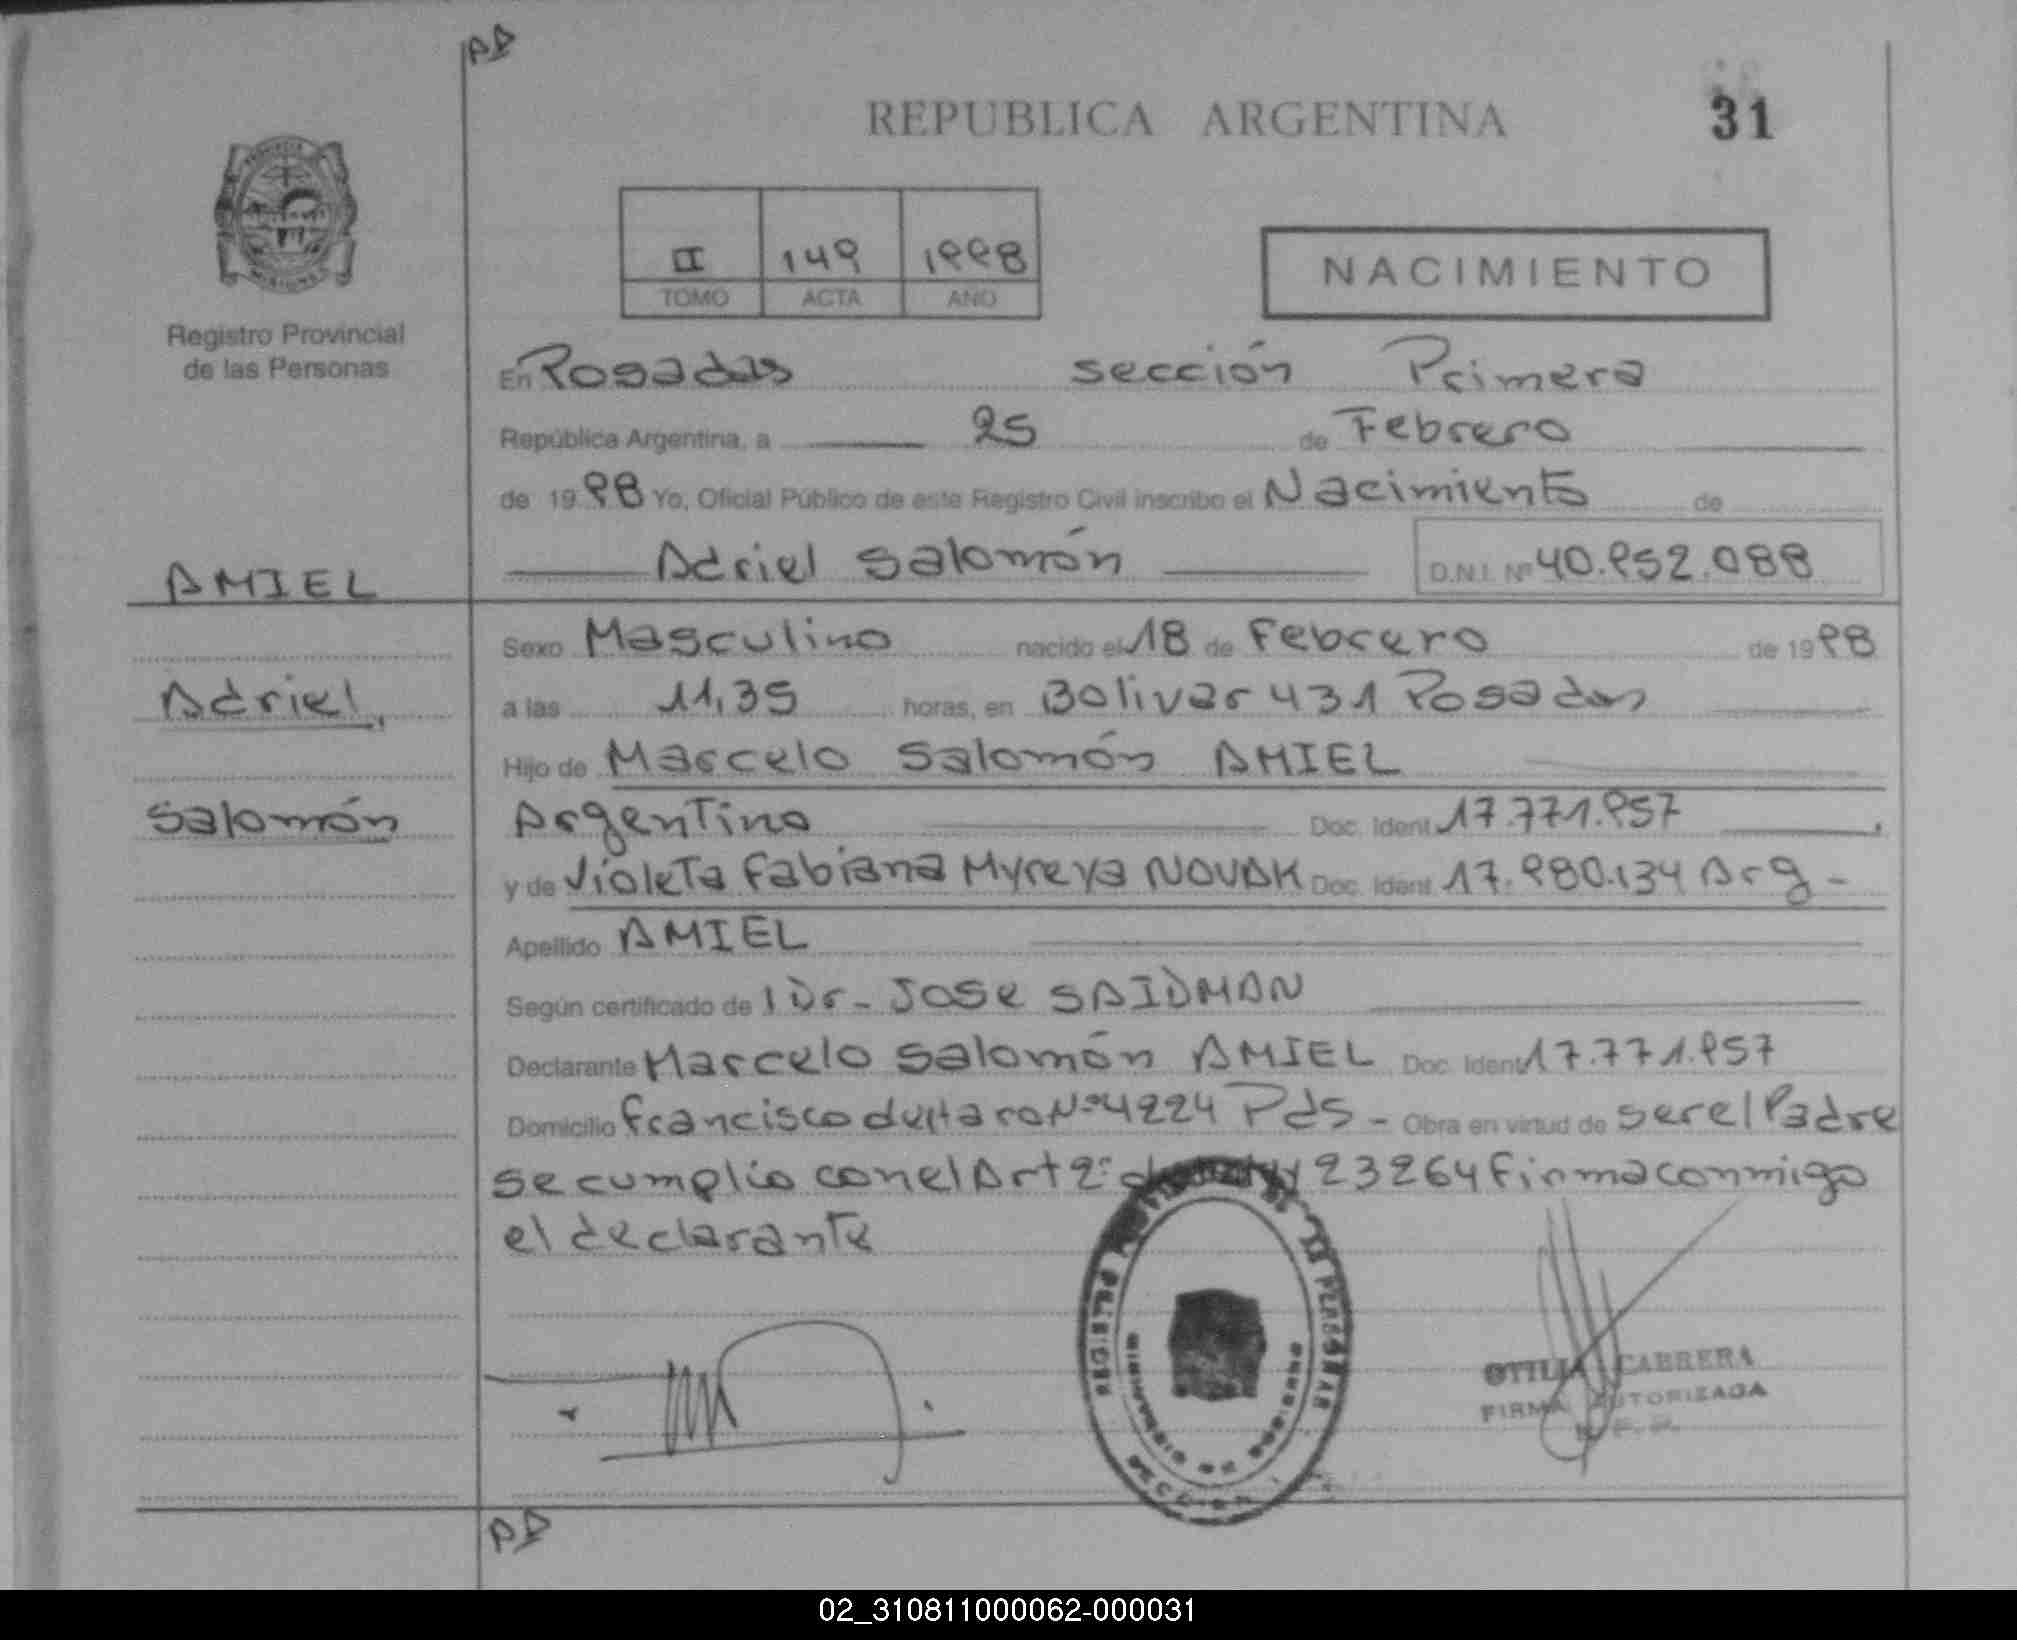 AA
REPUBLICA ARGENTINA
31
II 149 1998
TOMO ACTA AÑO
NACIMIENTO
Registro Provincial
de las Personas
En Posadas sección Primera
República Argentina, a 25 de Febrero
de 1998 Yo, Oficial Público de este Registro Civil inscribo el Nacimiento de
Adriel Salomón D.N.I. Nº 40.952.088
AMIEL
Sexo Masculino nacido el 18 de Febrero de 1998
Adriel,
a las 11,35 horas, en Bolivar 431 Posadas
Hijo de Marcelo Salomón AMIEL
Salomón
Argentino Doc. Ident 17.771.957
y de Violeta Fabiana Myreya NOVAK Doc. Ident 17.980.134 Arg -
Apellido AMIEL
Según certificado de Dr - Jose SAIDMAN
Declarante Marcelo Salomón AMIEL Doc. Ident 17.771.957
Domicilio Francisco de Haro Nº 4224 Pds - Obra en virtud de ser el Padre
se cumplio con el Art 2º 23264 firma conmigo
el declarante
OTILIA CABRERA
FIRMA AUTORIZADA
AA
02_310811000062-000031